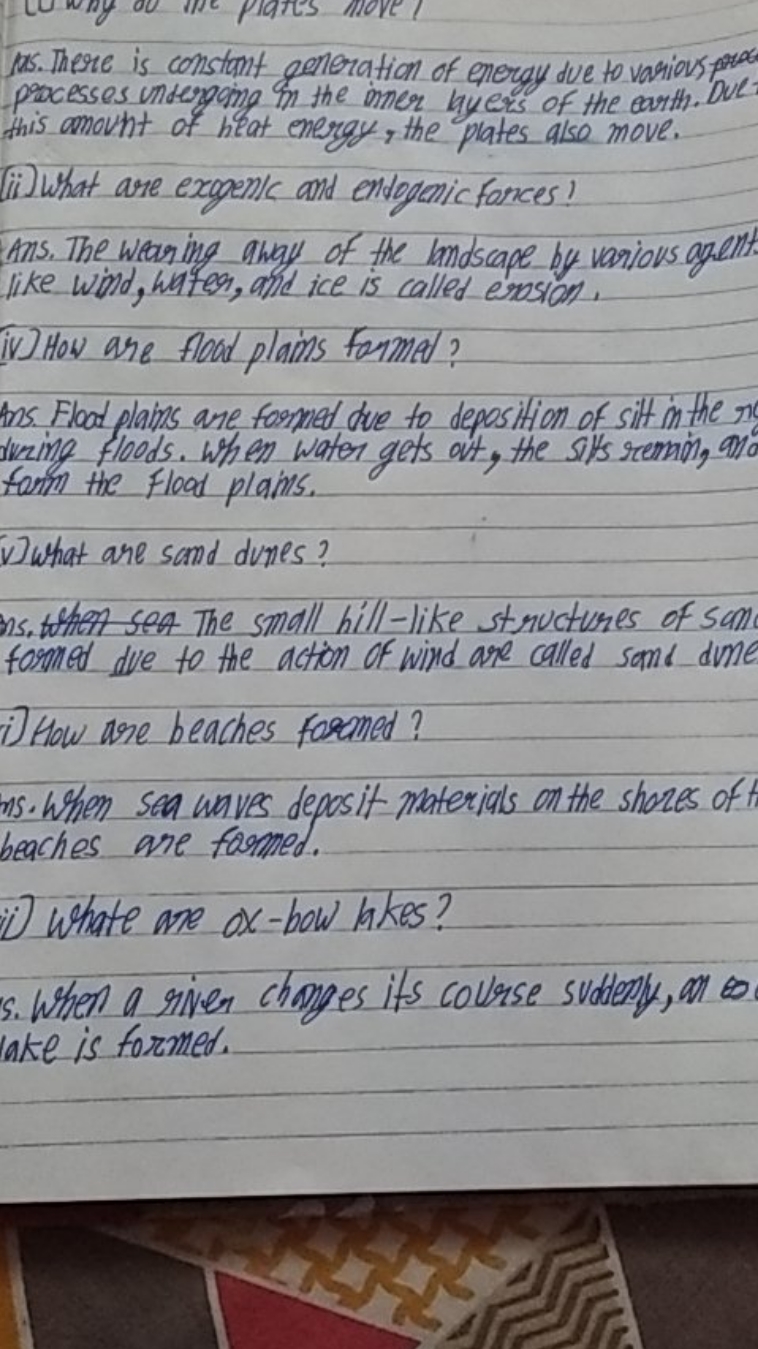 (i) Why do the plates move?
Ans. There is constant generation of energy due to various
processes undergoing in the inner layers of the earth. Due
this amount of heat energy, the plates also move.
(ii) What are exogenic and endogenic forces?
Ans. The wearing away of the landscape by various agent
like wind, water, and ice is called erosion.
(iv) How are flood plains formed?
Ans. Flood plains are formed due to deposition of silt in the
during floods. When water gets out, the silts remain, and
form the flood plains.
v) What are sand dunes?
ns. When sea The small hill-like structures of san
formed due to the action of wind are called sand dune
i) How are beaches formed?
ns. When sea waves deposit materials on the shores of
beaches are formed.
ii) Whate are ox-bow lakes?
s. When a river changes its course suddenly, an
lake is formed.